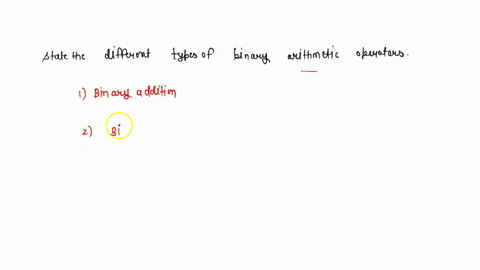 state the different types of binary arithmetic operators.
1) Binary addition
2) Bi